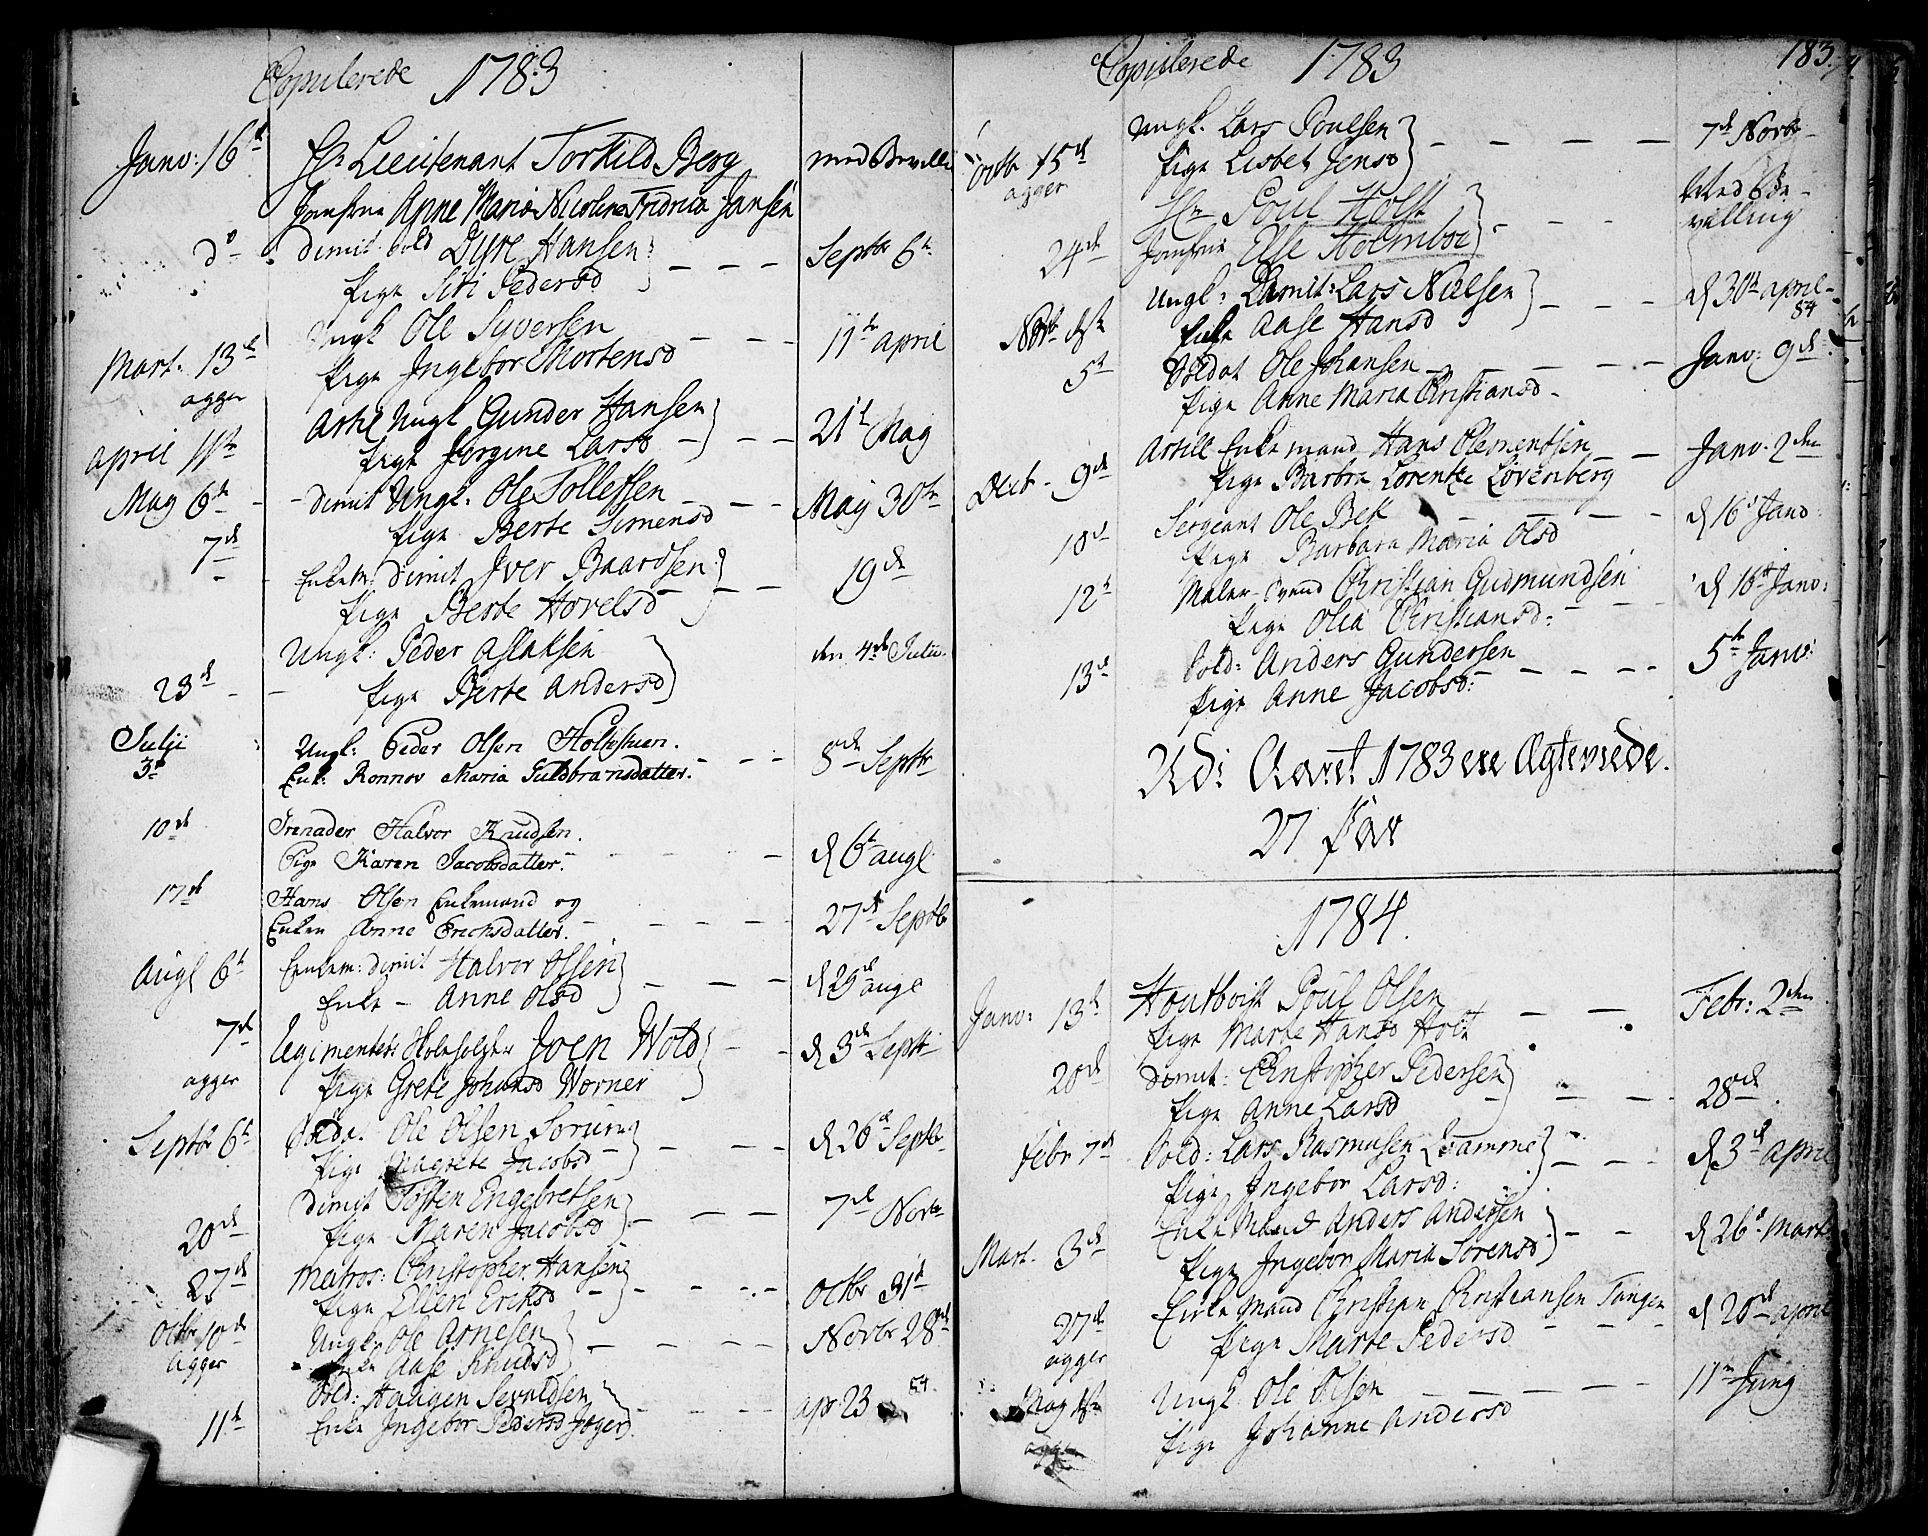 Copulerede 1783
Janv: 16d Hr Lieutenant Torkild Berg med Bevilli
Jomfrue Anne Maria Nicolina Fridrica Jansen
do dimit: Sold Dyre Hansen Septbr 6te
Pige Siri Pedersd
Ungk Ole Syversen 11te april
Mart. 13d Pige Ingebor Mortensd
agger
Artil Ungk Gunder Hansen 21d May
april 11te Pige Jorgine Larsd
May 6te dimit Ungk. Ole Tollefsen May 30te
Pige Berte Simensd
7de Enkem: dimit Iver Baardsen 19de
Pige Berte Hovelsd
Ungk: Peder Aslaksen den 4de Julii
23d Pige Berte Andersd
Julii Ungk: Peder Olsen 8de Septbr
3d Enk: Ronnov Maria Guldbransdatter.
10de Grenader Halvor Knudsen. d 6te augt
Pige Karen Jacobsdatter.
17de Hans Olsen Enkemand og 27de Septbr
Enken Anne Erichsdatter.
Augt 6te Enkem: dimit Halvor Olsen d 29de augt
Enke - Anne Olsd
7de Regimentets Joen Wold d 3de Septbr
agger Pige Grete Johansd Worner
Septbr 6te Soldat Ole Olsen Sorum d 26de Septbr
Pige Magrete Jacobsd
dimit Tosten Engebretsen 7de Novbr
20de Pige Maren Jacobsd
27de Matros: Christopher Hansen Octbr 31d
Pige Ellen Eriksd
Octbr 10de Ungk. Ole Arnesen Novbr 28de
agger Aase Knudsd
Sold: Haagen Sevaldsen apr 23 84.
11te Enke Ingebor Pedersd
Copulerede 1783 183.
Ungk. Lars Poulsen 7de Novbr
Octb 15de Pige Lisbet Jensd
agger
Hr Poul Holst Med Be-
24de Jomfrue Else Holmboe villing
Ungk: Dimit: Lars Nielsen d 30te april
84
Novbr Enke Aase Hansd
5te Soldat Ole Johansen Janv: 9de
Pige Anne Maria Christiansd
Artill Enkemand Hans Clementsen Janv. 2den
Decb. 9de Pige Barbra Lorentze Lovenberg
Sergeant Ole Bek d 16d Janv:
10de Pige Barbara Maria Olsd
12te Maler Svend Christian Gudmundsen d 16d Janv:
Pige Olia Christiansd:
13de Sold: Anders Gundersen 5te Janv:
Pige Anne Jacobsd:
Udi Aaret 1783 ere Ægteviede.
27 Par
1784.
Janv: 13de Poul Olsen Febr: 2den
Pige Marte Hansd Holt
20de dimit: Christopher Pedersen 28de
Pige Anne Larsd
Febr 7de Sold: Lars Rasmusen d 3de april
Pige Ingebor Larsd:
Enkemand Anders Andersen d 26d Mart
Mart. 3de Pige Ingebor Maria Sorensd
27de Enkemand Christian Christiansen Tangen d 20de april
agger Pige Marte Pedersd
May Ungk Ole Olsen 11te Juny
agger Pige Johanne Andersd